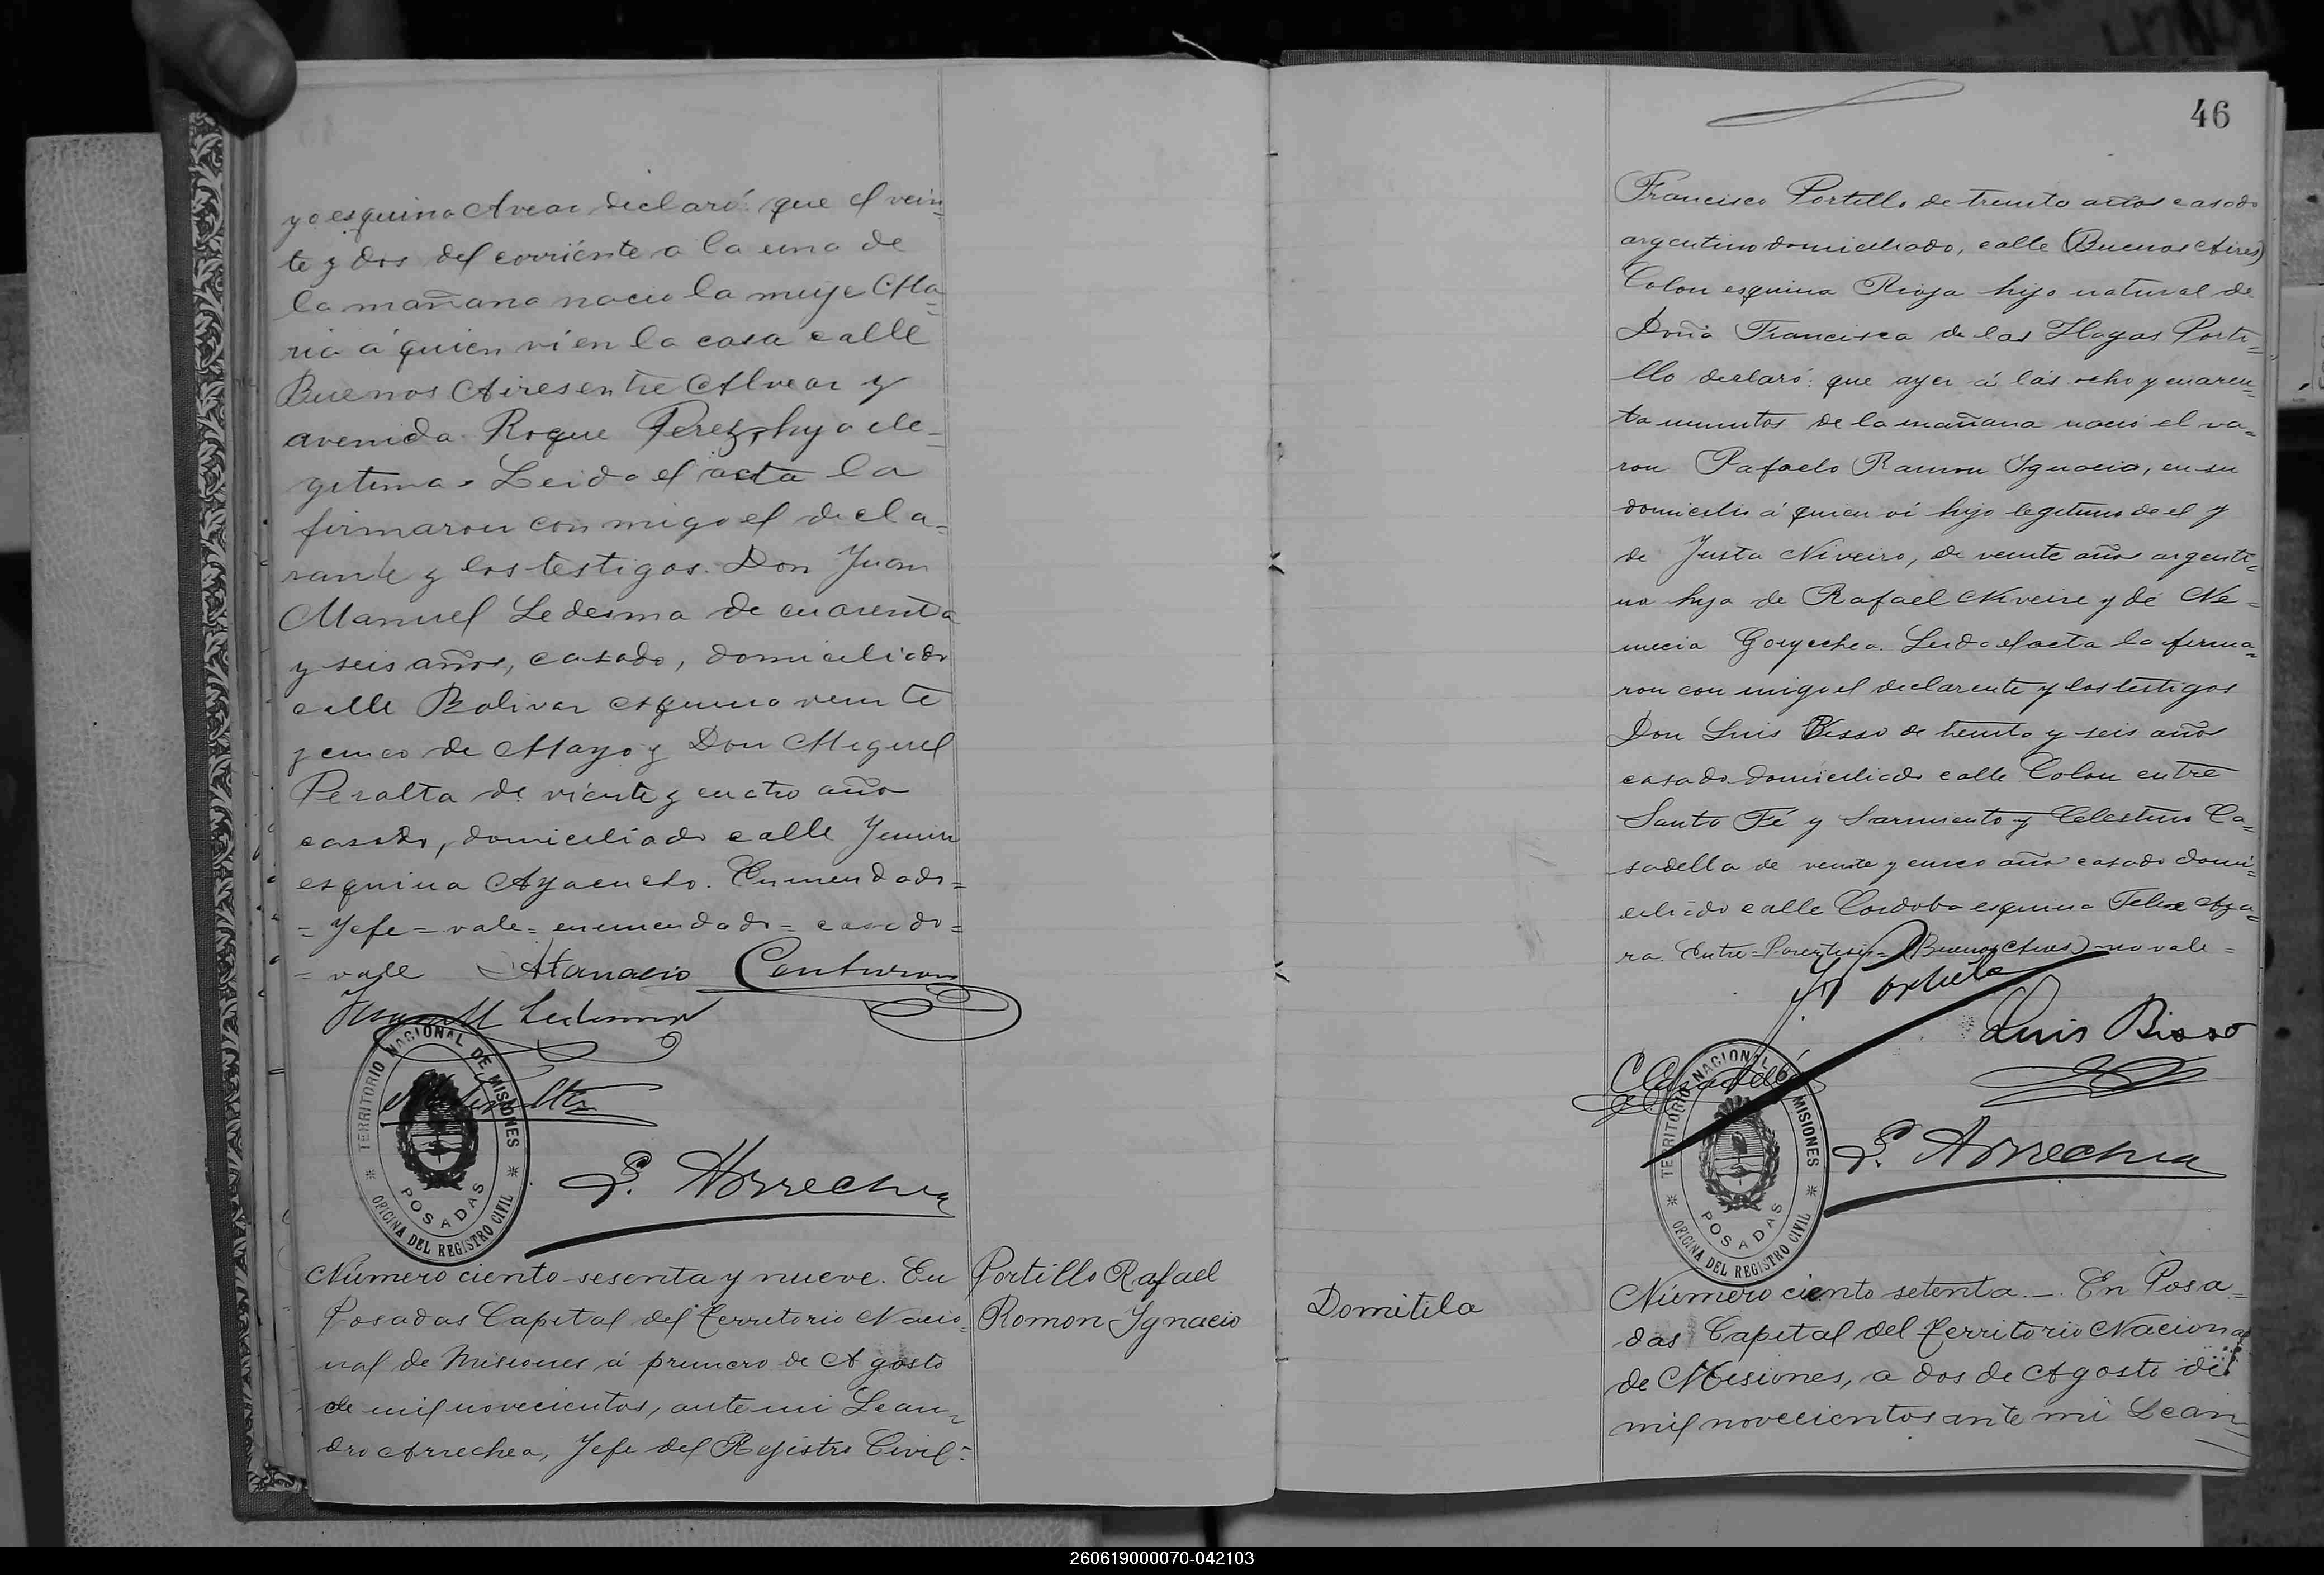 yo esquina Avear declaró: que el vein=
te y dos del corriente a la una de
la mañana nacio la muje Ma=
ria á quien ví en la casa calle
Buenos Aires entre Alvear y
avenida Roque Perez, hija ile=
gitima. Leida el acta la
firmaron con migo el decla=
rante y los testigos. Don Juan
Manuel Ledesma de cuarenta
y seis años, casado, domiciliado
calle Bolivar esquina veinte
y cinco de Mayo y Don Miguel
Peralta de viente y cuatro año
casado, domiciliado calle Junin
esquina Ayacucho. Enmendado=
=Jefe=vale=enmendado=casado=
=vale Atanacio Centurion
Juan M Ledesma
TERRITORIO NACIONAL DE MISIONES
POSADAS
OFICINA DEL REGISTRO CIVIL
L. Arrechea
Número ciento sesenta y nueve. En
Posadas Capital del Territorio Nacio=
nal de Misiones á primero de Agosto
de mil novecientos, ante mi Lean=
dro Arrechea, Jefe del Rejistro Civil=
Portillo Rafael
Romon Ignacio
46
Francisco Portillo de treinta años casado
argentino domiciliado, calle (Buenos Aires)
Colon esquina Rioja hijo natural de
Doña Francisca de las Llagas Porti=
llo declaró: que ayer á las ocho y cuaren=
ta minutos de la mañana nació el va=
ron Rafaelo Ramon Ignacio, en su
domicilio á quien ví hijo legitimo de el y
de Justa Niveiro, de veinte años argenti=
na hija de Rafael Niveiro y de Ne=
mecia Goyechea. Leida el acta la firma=
ron con migo el declarente y los testigos
Don Luis Bisso de treinta y seis años
casado domiciliado calle Colon entre
Santa Fé y Sarmiento y Celestino Ca=
sadella de veinte y cinco año casado domi=
ciliado calle Cordoba esquina Felix Aza=
ra. Entre=Parentesis=(Buenos Aires) no vale=
Luis Bisso
TERRITORIO NACIONAL DE MISIONES
POSADAS
OFICINA DEL REGISTRO CIVIL
L. Arrechea
Domitila
Número ciento setenta.—. En Posa=
das Capital del Territorio Nacional
de Misiones, a dos de Agosto de
mil novecientos ante mi Lean=
260619000070-042103